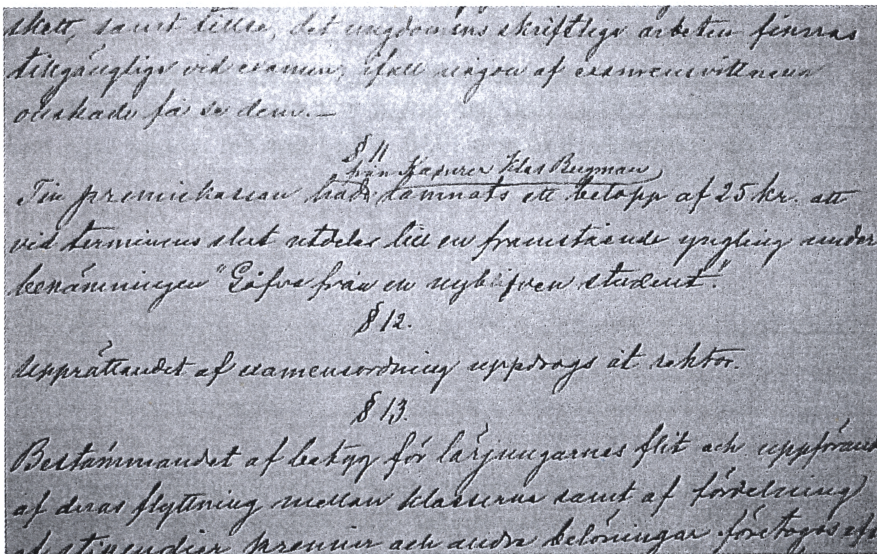 skett, samt tillse, det ungdomens skriftliga arbeten finnas
tillgängliga vid examen, ifall någon af examensvittnena
önskade få se dem.—
§ 11
från Kamrer Klas Bugman
Till premiekassan hade lämnats ett belopp af 25 kr. att
vid terminens slut utdelas till en framstående yngling under
benämningen "Gåfva från en nyblifven student".
§ 12.
Upprättandet af examensordning uppdrogs åt rektor.
§ 13.
Bestämmandet af betyg för lärjungarnes flit och uppförande
af deras flyttning mellan klasserna samt af fördelning
af stipendier premier och andra belöningar företogos